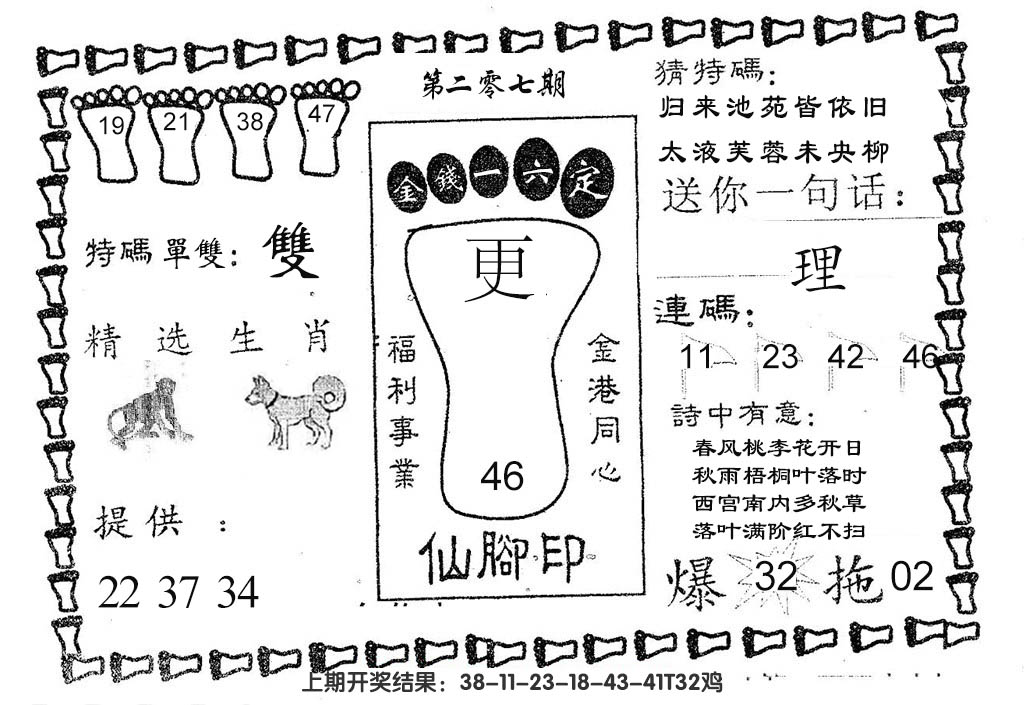 第二零七期
19 21 38 47
特碼單雙：雙
精选生肖
提供：
22 37 34
金錢一六定
更
福利事業
金港同心
46
仙腳印
猜特碼：
归来池苑皆依旧
太液芙蓉未央柳
送你一句话：
理
連碼：
11 23 42 46
詩中有意：
春风桃李花开日
秋雨梧桐叶落时
西宫南内多秋草
落叶满阶红不扫
爆 32 拖 02
上期开奖结果：38-11-23-18-43-41T32鸡